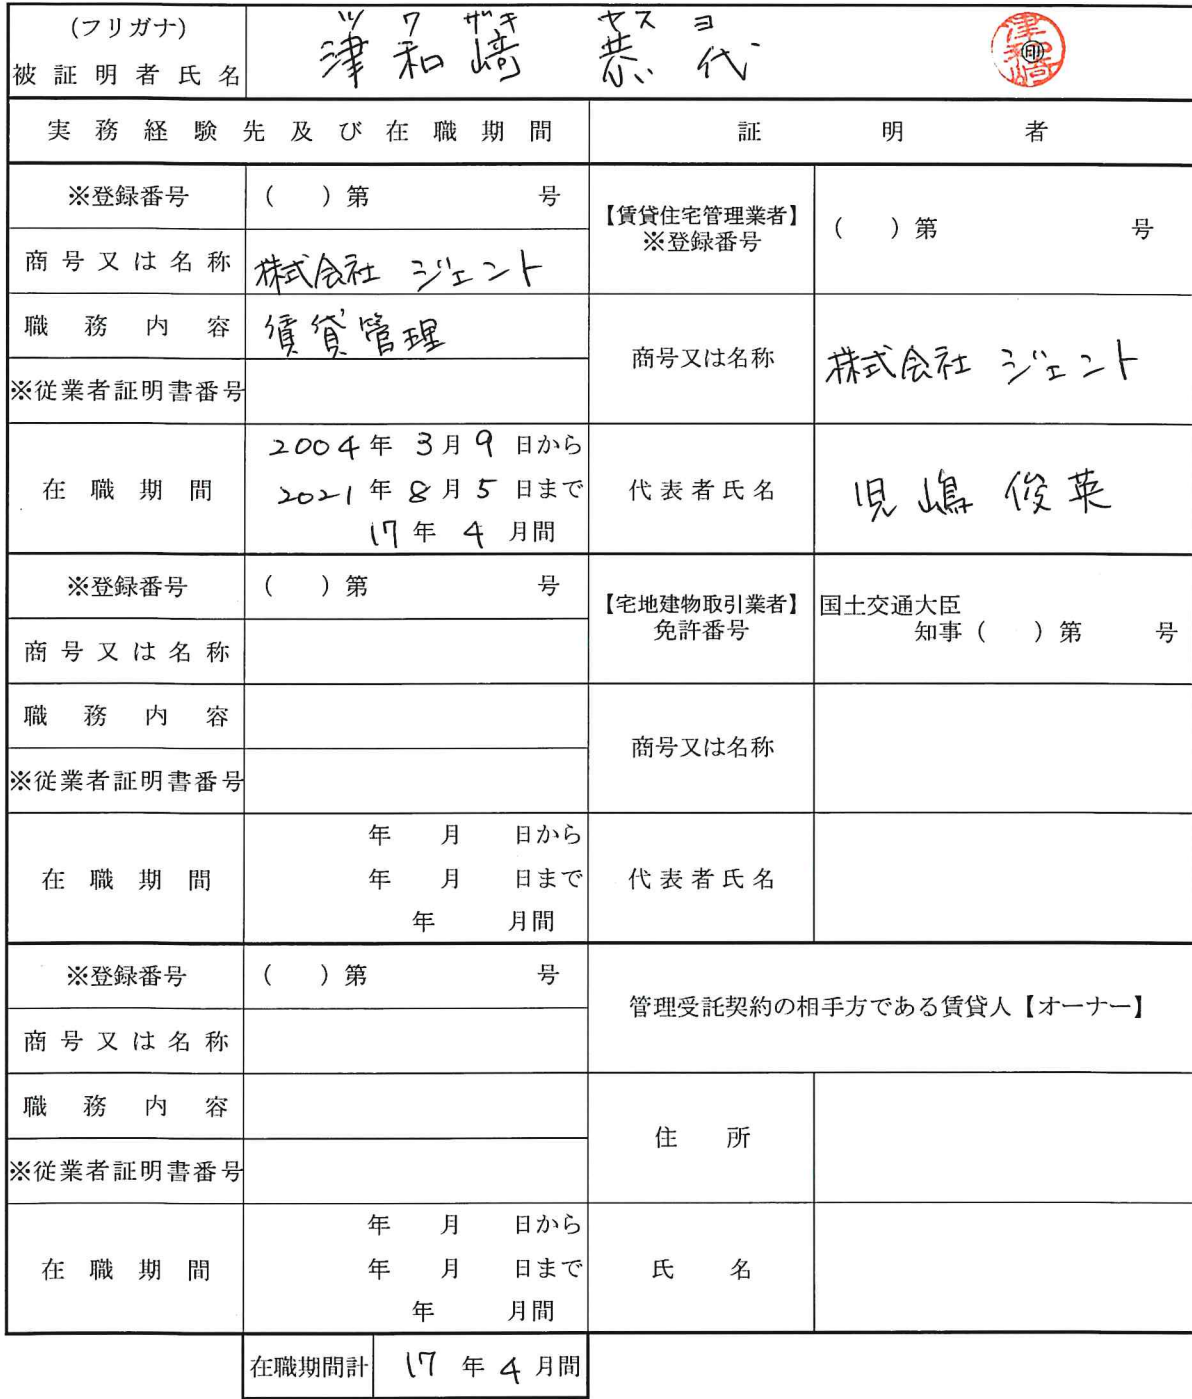 (フリガナ) ツ ワ ザキ ヤス ヨ
被証明者氏名 津和﨑 恭代 ㊞
津和崎
実務経験先及び在職期間 証明者
※登録番号 ( )第 号
商号又は名称 株式会社 ジェント
職務内容 賃貸管理
※従業者証明書番号
在職期間 2004年 3月 9日から
2021年 8月 5日まで
17年 4月間
【賃貸住宅管理業者】
※登録番号 ( )第 号
商号又は名称 株式会社 ジェント
代表者氏名 児嶋 俊英
※登録番号 ( )第 号
商号又は名称
職務内容
※従業者証明書番号
在職期間 年 月 日から
年 月 日まで
年 月間
【宅地建物取引業者】 国土交通大臣
免許番号 知事( )第 号
商号又は名称
代表者氏名
※登録番号 ( )第 号
商号又は名称
職務内容
※従業者証明書番号
在職期間 年 月 日から
年 月 日まで
年 月間
管理受託契約の相手方である賃貸人【オーナー】
住所
氏名
在職期間計 17年4月間